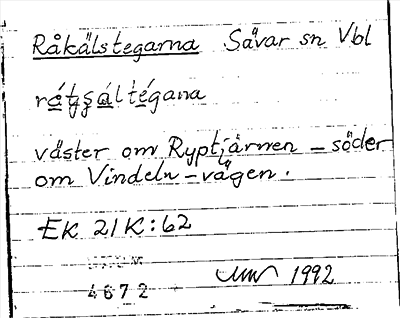 Råkälstegarna Sävar sn Vbl
väster om Ryptjärnen – söder
om Vindeln-vägen.
EK 21K:62
4672
1992